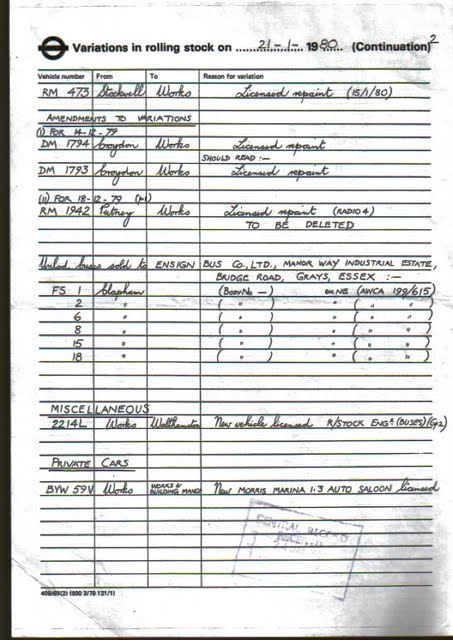 2
Variations in rolling stock on 21-1- 1980 (Continuation)
Vehicle number From To Reason for variation
RM 473 Stockwell Works Licensed repaint (15/1/80)
AMENDMENTS TO VARIATIONS
(I) FOR 14-12-79
DM 1794 Croydon Works Licensed repaint
SHOULD READ :-
DM 1793 Croydon Works Licensed repaint
(II) FOR 18-12-79 (p1)
RM 1942 Putney Works Licensed repaint (RADIO 4)
TO BE DELETED
Unlcd buses sold to ENSIGN BUS CO., LTD., MANOR WAY INDUSTRIAL ESTATE,
BRIDGE ROAD, GRAYS, ESSEX :-
FS 1 Clapham (Body No -) (AWCA 199/615)
2 " ( " ) " ( " " )
6 " ( " ) " ( " " )
8 " ( " ) " ( " " )
15 " ( " ) " ( " " )
18 " ( " ) " ( " " )
MISCELLANEOUS
2214L Works Walthamstow New vehicle licensed R/STOCK ENGR (BUSES) (Gp2)
PRIVATE CARS
BYW 59V Works WORKS & BUILDING MANGR New MORRIS MARINA 1.3 AUTO SALOON licensed
CENTRAL RECORD
RECEIVED
409/69(2) (800 3/79 121/1)